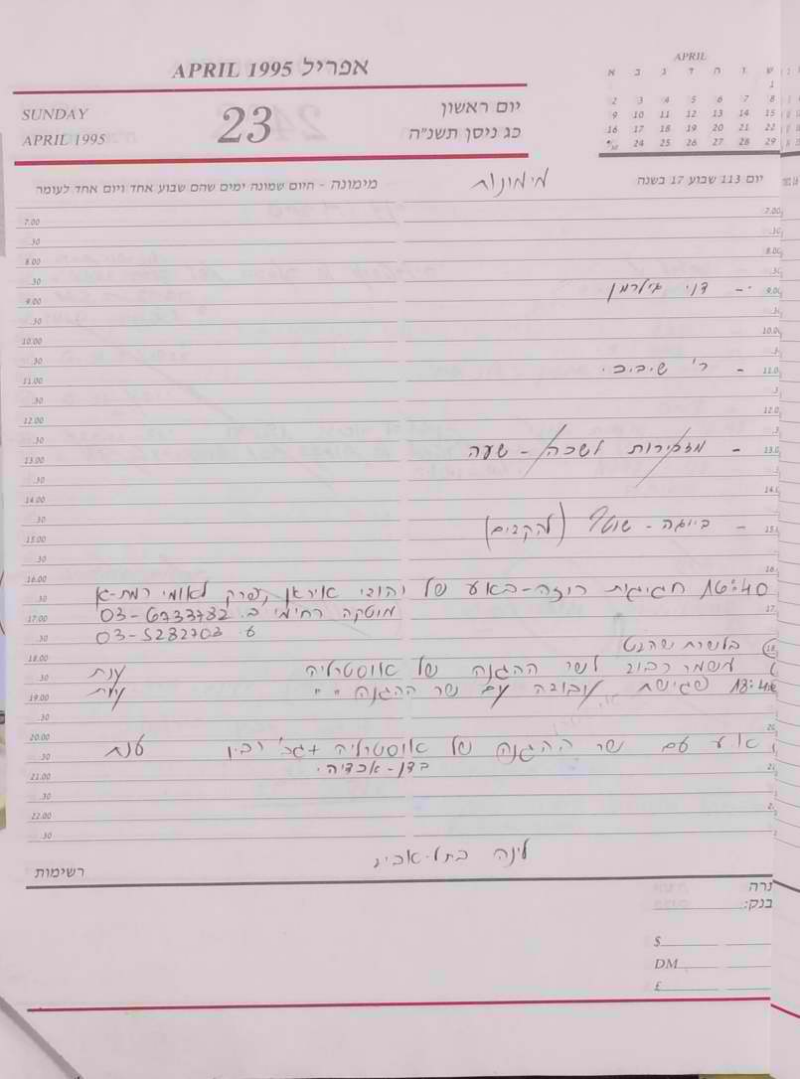 APRIL 1995 אפריל
SUNDAY
APRIL 1995
23
יום ראשון
כג ניסן תשנ"ה
APRIL
א ב ג ד ה ו ש
1
2 3 4 5 6 7 8
9 10 11 12 13 14 15
16 17 18 19 20 21 22
24 25 26 27 28 29
מימונה - היום שמונה ימים שהם שבוע אחד ויום אחד לעומר
מימונות
יום 113 שבוע 17 בשנה
7.00
.30
8.00
.30
- דני גילרמן
9.00
.30
10.00
.30
11.00
- ר' שיבובי
.30
12.00
.30
13.00
- מזכירות לשכה - שעה
.30
14.00
.30
- ביוגה - שוטף (להקדים)
15.00
.30
16.00
16:40 חגיגת רוזה-באע של יהודי איראן, פארק לאומי רמת-גן
.30
מוטקה רחימי ב. 03-6733782
17.00
ע. 03-5282703
.30
18.00
משמר כבוד לשר ההגנה של אוסטרליה ענת
.30
פגישת עבודה עם שר ההגנה " " ענת
19.00
.30
20.00
א.ע עם שר ההגנה של אוסטרליה + גב' רבין ענת
.30
בדן-אכדיה.
21.00
.30
22.00
.30
לינה בתל-אביב
רשימות
בנק:
$
DM
£